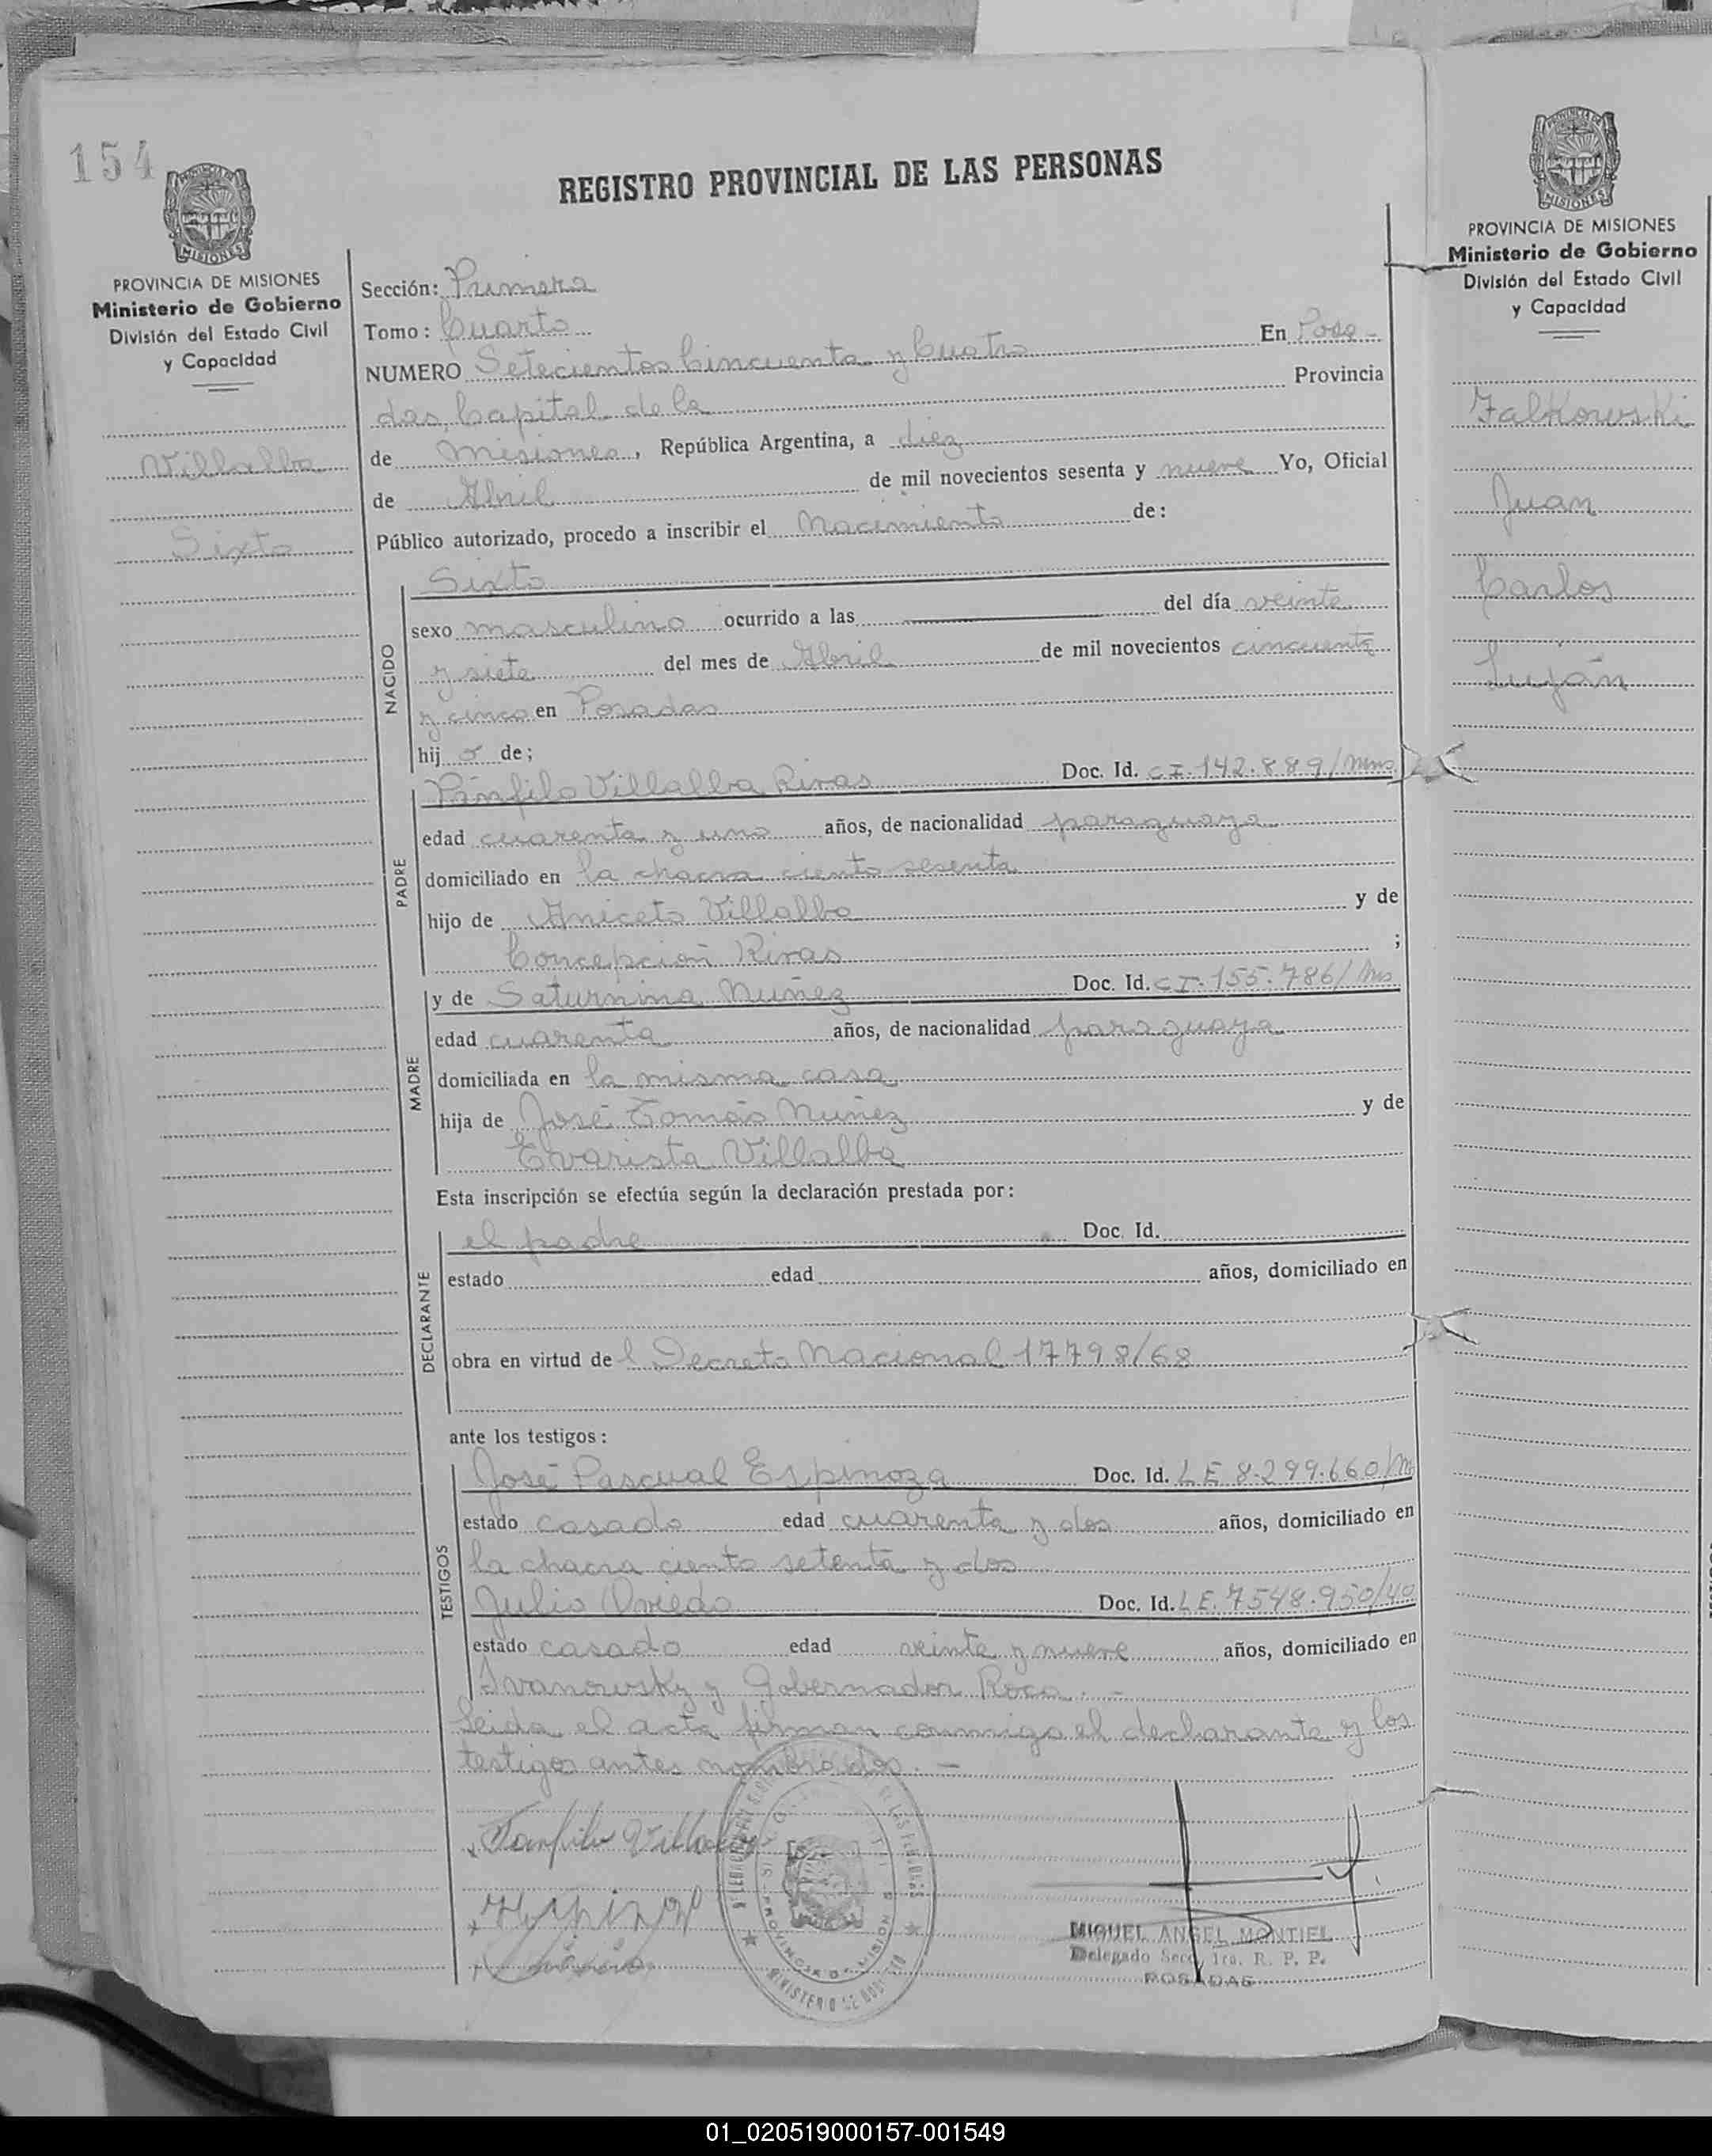 154
MISIONES
PROVINCIA DE MISIONES
Ministerio de Gobierno
División del Estado Civil
y Capacidad
Villalba
Sixto
REGISTRO PROVINCIAL DE LAS PERSONAS
Sección: Primera
Tomo: Cuarto
NUMERO Setecientos Cincuenta y Cuatro En Posa-
das, Capital de la Provincia
de Misiones, República Argentina, a diez
de Abril de mil novecientos sesenta y nueve Yo, Oficial
Público autorizado, procedo a inscribir el Nacimiento de:
NACIDO
Sixto
sexo masculino ocurrido a las del día veinte
y siete del mes de Abril de mil novecientos cincuenta
y cinco en Posadas
hij o de;
PADRE
Pánfilo Villalba Rivas Doc. Id. CI. 142.889/Mns
edad cuarenta y uno años, de nacionalidad paraguaya
domiciliado en la chacra ciento sesenta
hijo de Aniceto Villalba y de
Concepción Rivas ;
MADRE
y de Saturnina Nuñez Doc. Id. CI. 155.786/Mns
edad cuarenta años, de nacionalidad paraguaya
domiciliada en la misma casa
hija de José Tomás Nuñez y de
Evarista Villalba
Esta inscripción se efectúa según la declaración prestada por:
DECLARANTE
el padre Doc. Id.
estado edad años, domiciliado en
obra en virtud de l Decreto Nacional 17798/68
ante los testigos:
TESTIGOS
José Pascual Espinoza Doc. Id. LE 8.299.660/M
estado casado edad cuarenta y dos años, domiciliado en
la chacra ciento setenta y dos
Julio Oviedo Doc. Id. L E. 7548.950/40
estado casado edad veinte y nueve años, domiciliado en
Ivanowsky y Gobernador Roca. -
Leida el acta firman conmigo el declarante y los
testigos antes nombrados. -
Panfilo Villalba
PROVINCIA DE MISIONES
MINISTERIO DE GOBIERNO
MIGUEL ANGEL MONTIEL
Delegado Secc. 1ra. R. P. P.
POSADAS
MISIONES
PROVINCIA DE MISIONES
Ministerio de Gobierno
División del Estado Civil
y Capacidad
Falkowski
Juan
Carlos
Luján
01_020519000157-001549